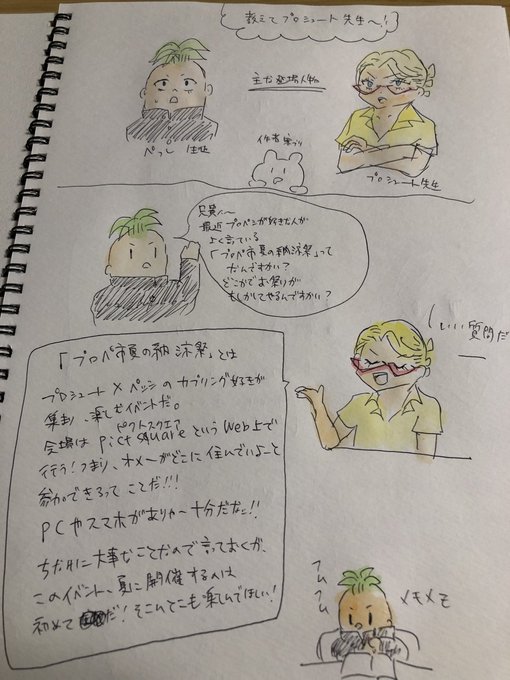 教えてプロシュート先生〜!
主な登場人物
ぺっし 生徒
作者
プロシュート先生
兄貴〜
最近プロペシが好きな人が
よく言っている
「プロペ市夏の納涼祭」って
なんですかい?
どこかでお祭りが
もしかしてやるんですかい?
いい質問だ
「プロペ市夏の納涼祭」とは
プロシュート×ペッシのカプリング好きが
集まり、楽しむイベントだ。
ピクトスクエア
会場はpictSquareというWeb上で
行う!つまり、オメーがどこに住んでいよーと
参加できるってことだ!!!
PCやスマホがありゃー十分だな!!
ちなみに大事なことなので言っておくが、
このイベント、夏に開催するのは
初めてだ!そこんとこも楽しんでほしい!
フムフム
メモメモ